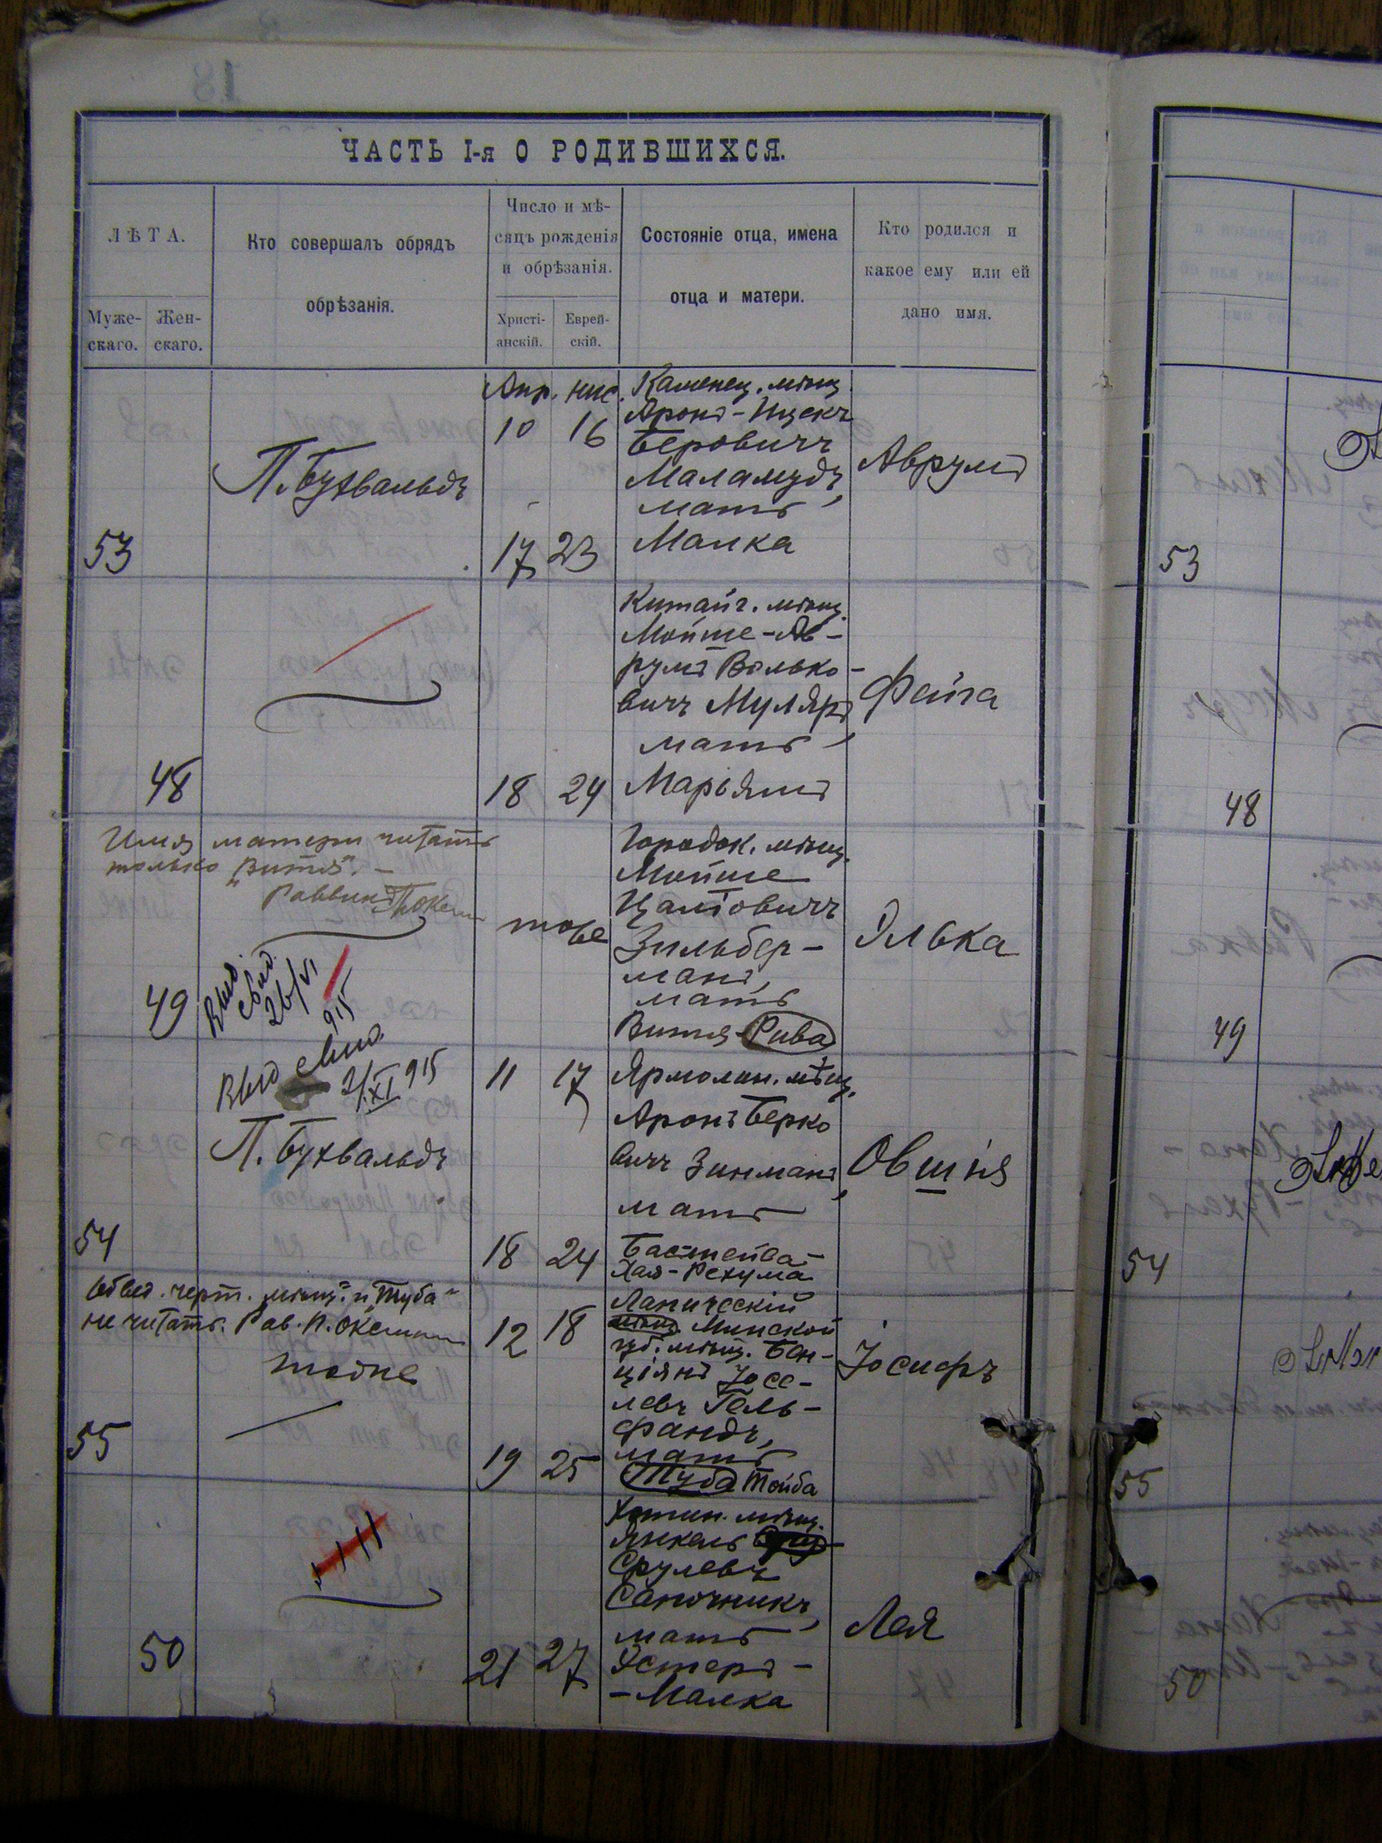 ЧАСТЬ I-я О РОДИВШИХСЯ.
ЛѢТА.
Муже-
скаго.
Жен-
скаго.
Кто совершалъ обрядъ
обрѣзанія.
Число и мѣ-
сяцъ рожденія
и обрѣзанія.
Христі-
анскій.
Еврей-
скій.
Состояніе отца, имена
отца и матери.
Кто родился и
какое ему или ей
дано имя.
53
П. Бухвальдъ
Апр. Нис.
10 16
17 23
Каменец. мѣщ.
Аронъ-Ицекъ
Беровичъ
Маламудъ,
мать
Малка
Аврумъ
48
18 24
Китайг. мѣщ.
Мойше-Ав-
румъ Волько-
вичъ Муляръ,
мать
Марьямъ
Фейга
Имя матери читать
только „Витя". –
Раввинъ
49
Выд.
свид.
26/VI
915
тоже
Городок. мѣщ.
Мойше
Зильбер-
манъ,
мать
Витя-Рива
Элька
Выд свид
2/XI 915
П. Бухвальдъ
54
11 17
18 24
Ярмолин. мѣщ.
Аронъ Берко
вичъ Зинманъ,
мать
Басшейва-
Хая-Рехума
Овшія
черт. „мѣщ." и „Туба"
не читать. Рав. П.
тоже
55
12 18
19 25
Лапическій
мѣщ. Минской
губ. мѣщ. Бен-
ціянъ Іосе-
левъ Гель-
фандъ,
мать
Туба Тойба
Іосифъ
50
21 27
Хотин. мѣщ.
Янкель
Срулевъ
Саночникъ,
мать
Эстеръ-
-Малка
Лея
53
48
49
54
55
50